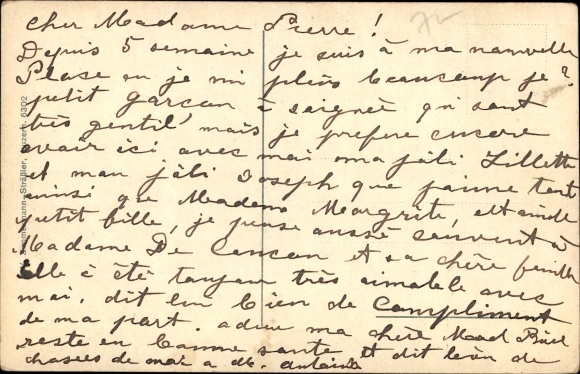 cher Madame Pierre !
Depuis 5 semaine je suis à ma nouvelle
Place ou je mi plais beaucoup je ?
petit garcon à soignée qui sont
très gentil, mais je prefere encore
avoir ici avec moi ma joli Lillette
et mon joli Joseph que j'aime tant
ainsi que Madame Margrite,
petit fille, je pense aussi souvent à
Madame De et sa chère famille
Elle à été toujour très aimabele avec
moi. dit leu bien de Compliment
de ma part. adieu ma chère Mad
reste en bonne sante et dit bien de
choses de moi a M. Antoine
Zimmermann-Sträßler, Luzern. 6302
72